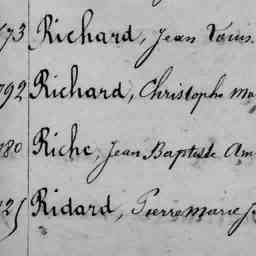 73 Richard, Jean Louis
792 Richard, Christophe Ma
980 Riche, Jean Baptiste Am
25 Ridard, Pierre Marie